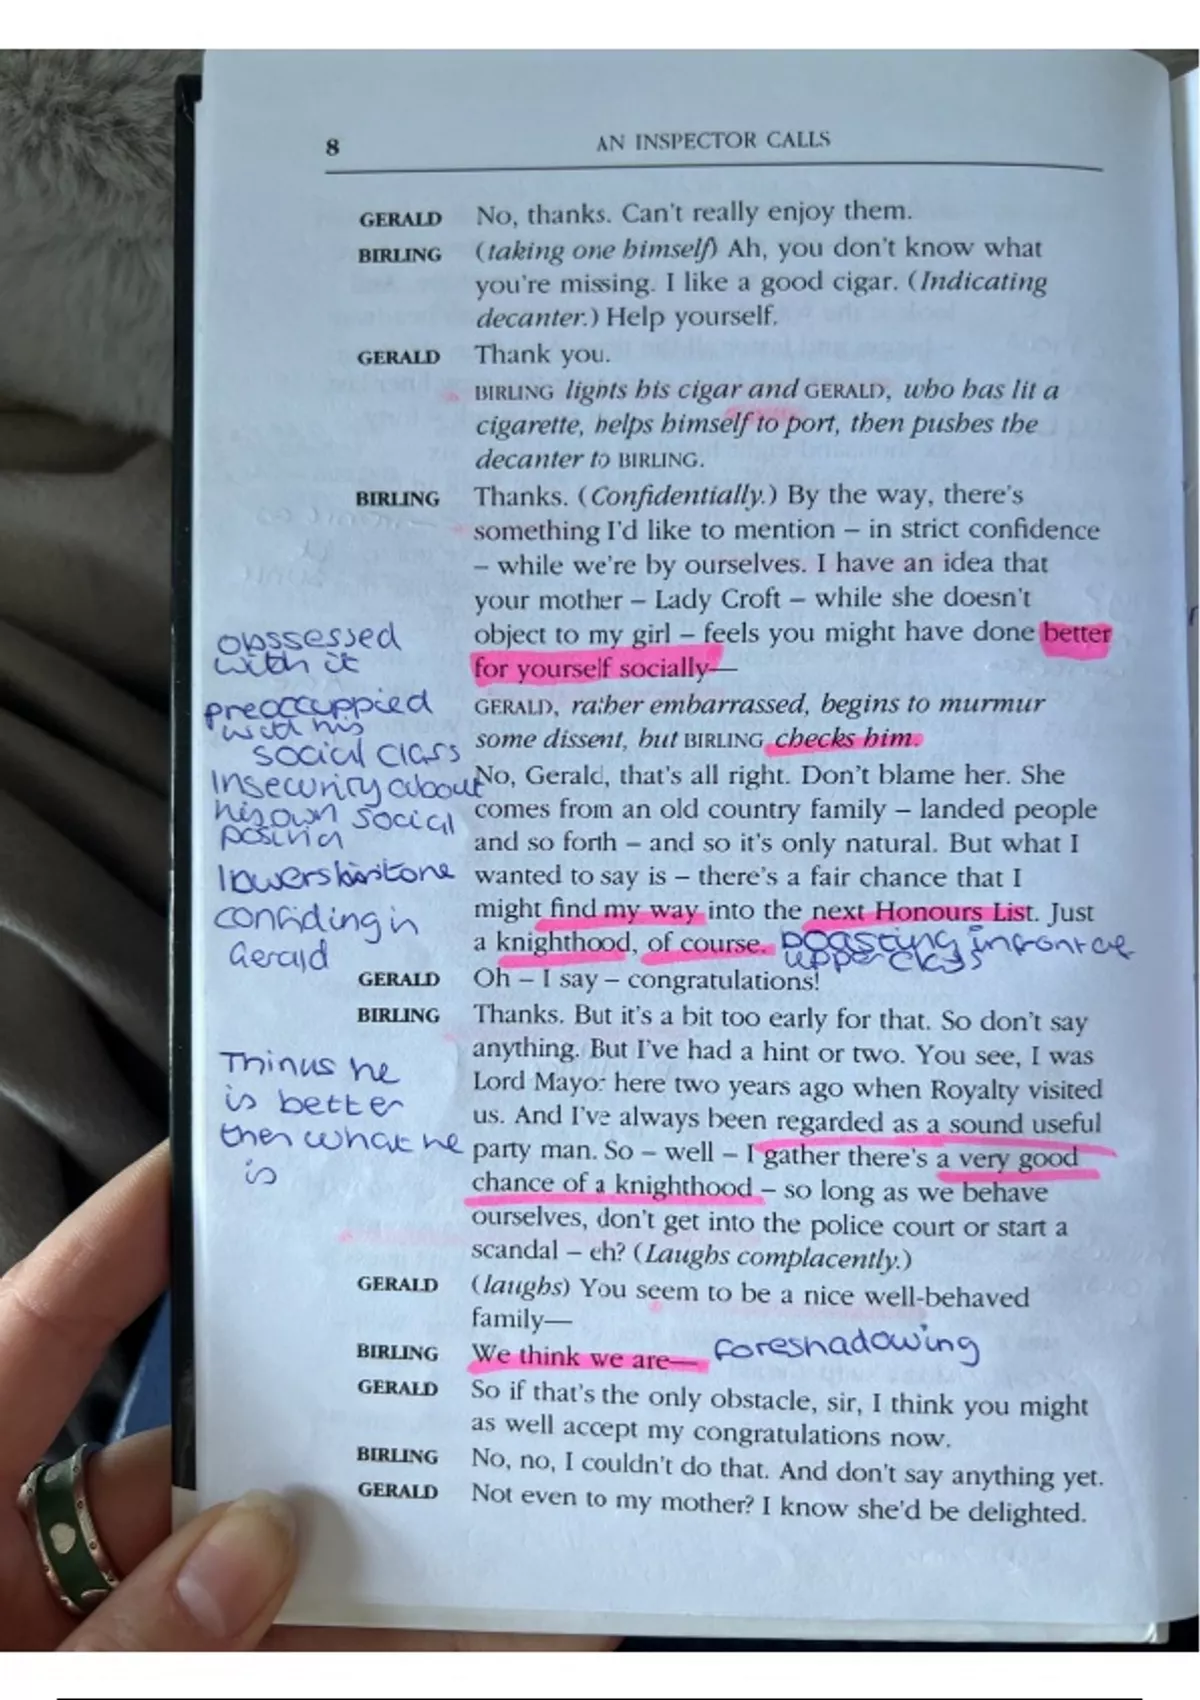 8 AN INSPECTOR CALLS
GERALD No, thanks. Can't really enjoy them.
BIRLING (taking one himself) Ah, you don't know what
you're missing. I like a good cigar. (Indicating
decanter.) Help yourself.
GERALD Thank you.
BIRLING lights his cigar and GERALD, who has lit a
cigarette, helps himself to port, then pushes the
decanter to BIRLING.
BIRLING Thanks. (Confidentially.) By the way, there's
something I'd like to mention – in strict confidence
– while we're by ourselves. I have an idea that
your mother – Lady Croft – while she doesn't
object to my girl – feels you might have done better
for yourself socially—
GERALD, rather embarrassed, begins to murmur
some dissent, but BIRLING checks him.
No, Gerald, that's all right. Don't blame her. She
comes from an old country family – landed people
and so forth – and so it's only natural. But what I
wanted to say is – there's a fair chance that I
might find my way into the next Honours List. Just
a knighthood, of course.
GERALD Oh – I say – congratulations!
BIRLING Thanks. But it's a bit too early for that. So don't say
anything. But I've had a hint or two. You see, I was
Lord Mayor here two years ago when Royalty visited
us. And I've always been regarded as a sound useful
party man. So – well – I gather there's a very good
chance of a knighthood – so long as we behave
ourselves, don't get into the police court or start a
scandal – eh? (Laughs complacently.)
GERALD (laughs) You seem to be a nice well-behaved
family—
BIRLING We think we are—
GERALD So if that's the only obstacle, sir, I think you might
as well accept my congratulations now.
BIRLING No, no, I couldn't do that. And don't say anything yet.
GERALD Not even to my mother? I know she'd be delighted.
obssessed
with it
preoccuppied
with his
social class
Insecurity about
his own social
lowers his tone
confiding in
Gerald
boasting infront of
upper class
Thinks he
is better
then what he
is
foreshadowing